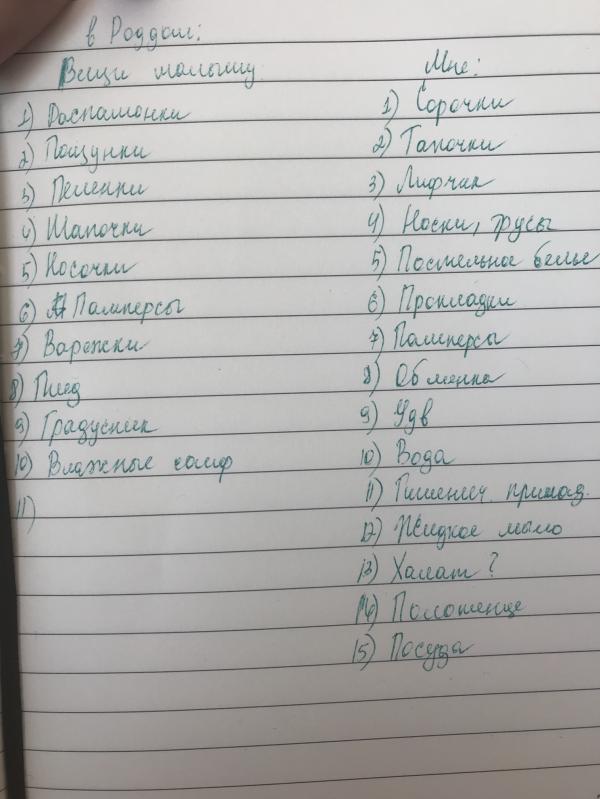 в Роддом:
Вещи малышу
1) Распашонки
2) Ползунки
3) Пеленки
4) Шапочки
5) Носочки
6) Памперсы
7) Варежки
8) Плед
9) Градусник
10) Влажные салф
11)
Мне:
1) Сорочки
2) Тапочки
3) Лифчик
4) Носки, трусы
5) Постельное белье
6) Прокладки
7) Памперсы
8) Обменка
9) Удв
10) Вода
11) Гигиенич. принад.
12) Жидкое мыло
13) Халат ?
14) Полотенце
15) Посуда